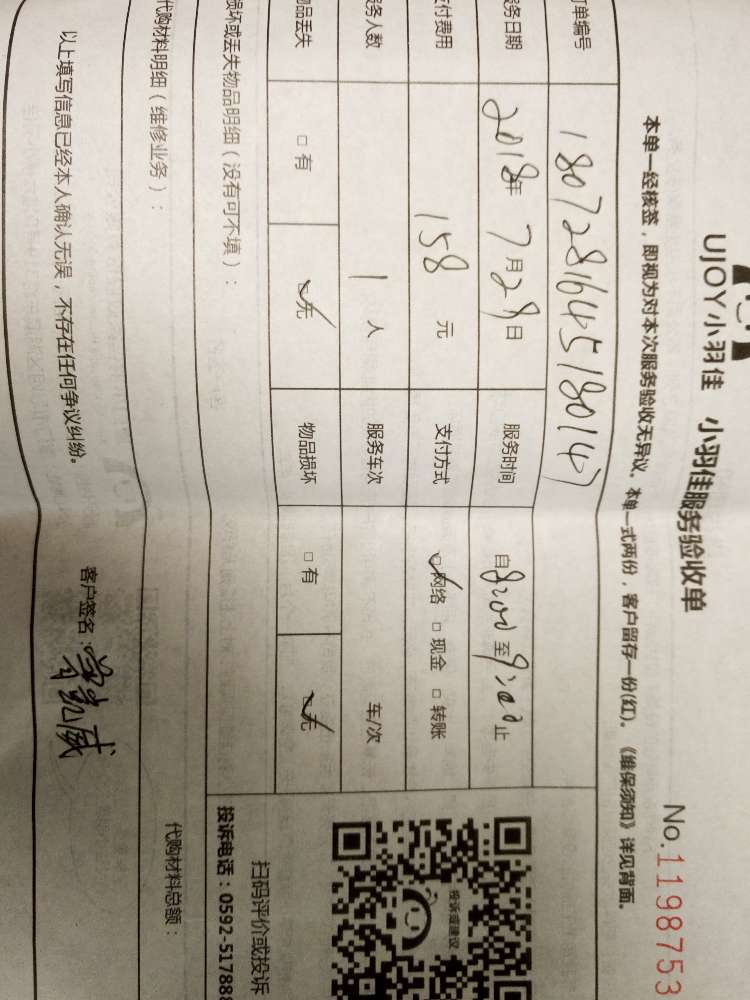 UJOY小羽佳 小羽佳服务验收单
No.1198753
本单一经核签，即视为对本次服务验收无异议。本单一式两份，客户留存一份(红)。《维保须知》详见背面。
订单编号 180728164518014
服务日期 2018年7月29日 服务时间 自8:00至9:00止
支付费用 158元 支付方式 网络 □现金 □转账
服务人数 1人 服务车次 车/次
物品丢失 □有 无 物品损坏 □有 □无
损坏或丢失物品明细（没有可不填）：
投诉或建议
扫码评价或投诉
投诉电话：0592-517888
代购材料明细（维修业务）： 代购材料总额：
以上填写信息已经本人确认无误，不存在任何争议纠纷。 客户签名：